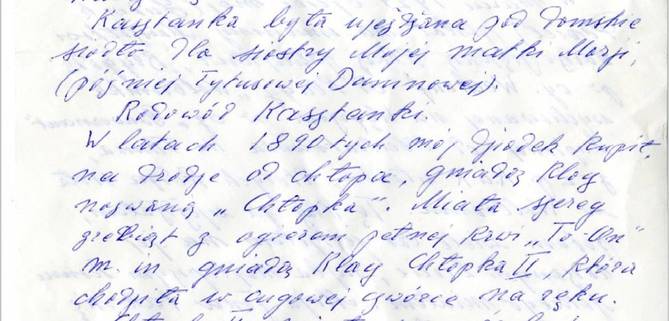 Kasztanka była ujeżdżana pod damskie
siodło dla siostry Mojej matki Marji,
(później Tytusowej Daninowej).
Rodowód Kasztanki.
W latach 1890 tych mój dziadek kupił,
na drodze od chłopa, gniadą klacz
nazwaną „Chłopka". Miała szereg
źrebiąt z ogierem pełnej krwi „To-On"
m. in gniadą Klacz Chłopka II, która
chodziła w cugowej czwórce na ręku.